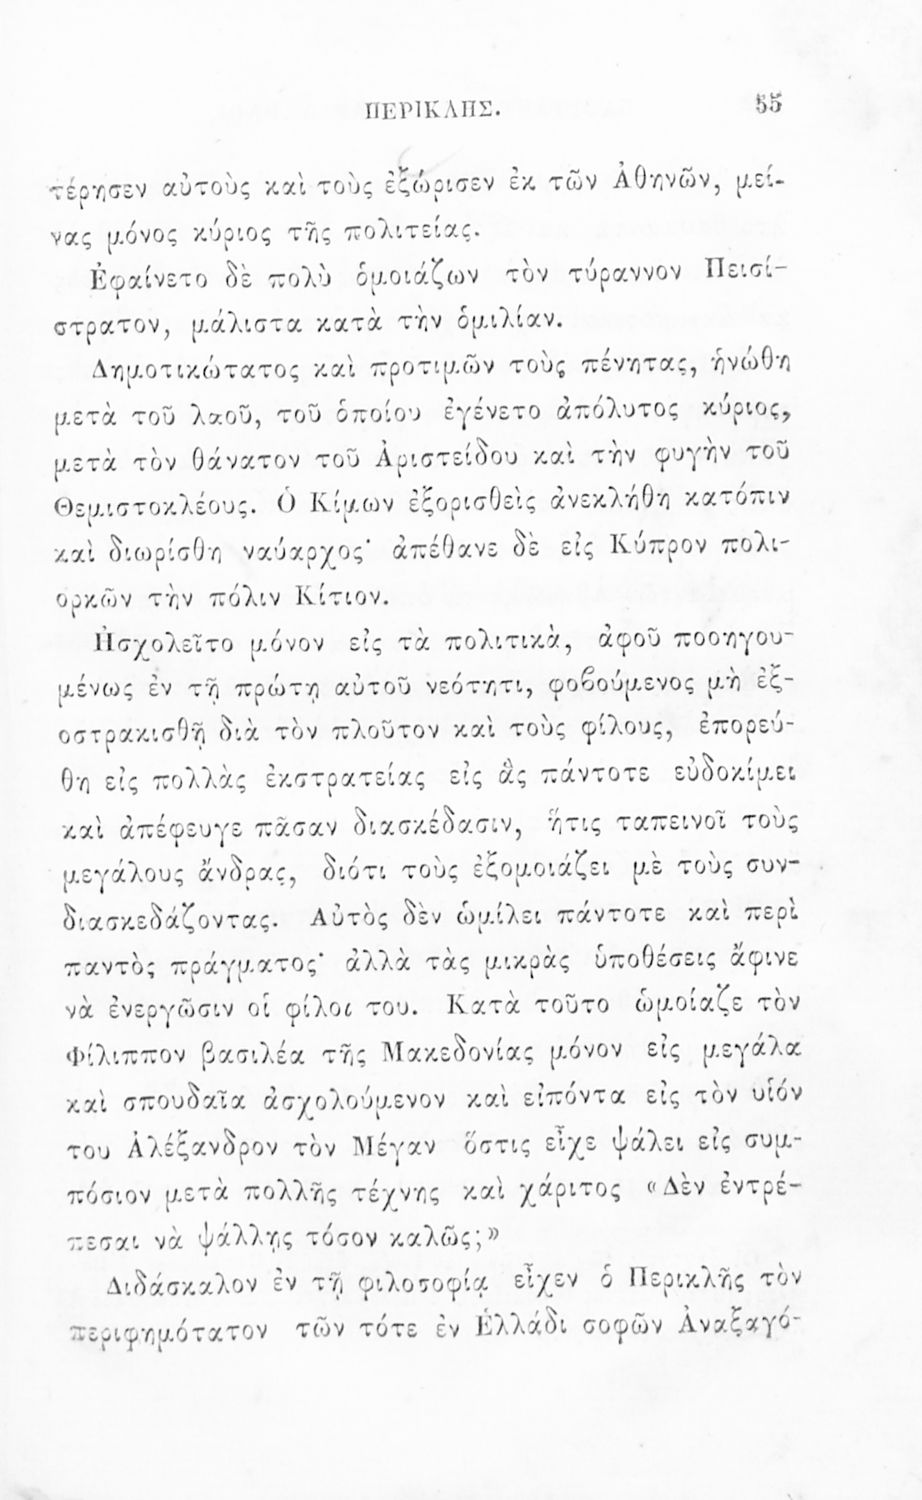 ΠΕΡΙΚΛΗΣ. 55
τέρησεν αὐτοὺς καὶ τοὺς ἐξώρισεν ἐκ τῶν Ἀθηνῶν, μεί-
νας μόνος κύριος τῆς πολιτείας.
Ἐφαίνετο δὲ πολὺ ὁμοιάζων τὸν τύραννον Πεισί-
στρατον, μάλιστα κατὰ τὴν ὁμιλίαν.
Δημοτικώτατος καὶ προτιμῶν τοὺς πένητας, ἡνώθη
μετὰ τοῦ λαοῦ, τοῦ ὁποίου ἐγένετο ἀπόλυτος κύριος,
μετὰ τὸν θάνατον τοῦ Ἀριστείδου καὶ τὴν φυγὴν τοῦ
Θεμιστοκλέους. Ὁ Κίμων ἐξορισθεὶς ἀνεκλήθη κατόπιν
καὶ διωρίσθη ναύαρχος· ἀπέθανε δὲ εἰς Κύπρον πολι-
ορκῶν τὴν πόλιν Κίτιον.
Ἠσχολεῖτο μόνον εἰς τὰ πολιτικὰ, ἀφοῦ ποοηγου-
μένως ἐν τῇ πρώτῃ αὐτοῦ νεότητι, φοβούμενος μὴ ἐξ-
οστρακισθῇ διὰ τὸν πλοῦτον καὶ τοὺς φίλους, ἐπορεύ-
θη εἰς πολλὰς ἐκστρατείας εἰς ἃς πάντοτε εὐδοκίμει
καὶ ἀπέφευγε πᾶσαν διασκέδασιν, ἥτις ταπεινοῖ τοὺς
μεγάλους ἄνδρας, διότι τοὺς ἐξομοιάζει μὲ τοὺς συν-
διασκεδάζοντας. Αὐτὸς δὲν ὡμίλει πάντοτε καὶ περὶ
παντὸς πράγματος· ἀλλὰ τὰς μικρὰς ὑποθέσεις ἄφινε
νὰ ἐνεργῶσιν οἱ φίλοι του. Κατὰ τοῦτο ὡμοίαζε τὸν
Φίλιππον βασιλέα τῆς Μακεδονίας μόνον εἰς μεγάλα
καὶ σπουδαῖα ἀσχολούμενον καὶ εἰπόντα εἰς τὸν υἱόν
του Ἀλέξανδρον τὸν Μέγαν ὅστις εἶχε ψάλει εἰς συμ-
πόσιον μετὰ πολλῆς τέχνης καὶ χάριτος «Δὲν ἐντρέ-
πεσαι νὰ ψάλλῃς τόσον καλῶς;»
Διδάσκαλον ἐν τῇ φιλοσοφίᾳ εἶχεν ὁ Περικλῆς τὸν
περιφημότατον τῶν τότε ἐν Ἑλλάδι σοφῶν Ἀναξαγό-